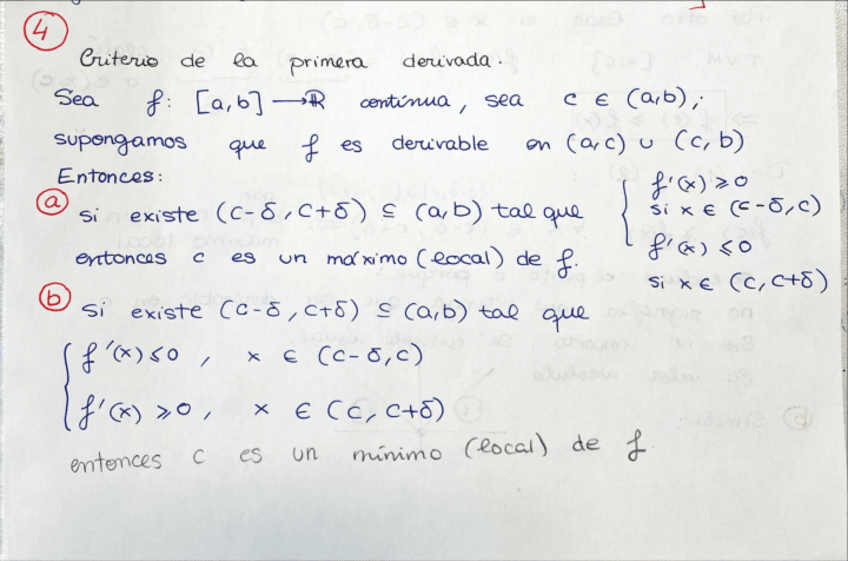 ④
Criterio de la primera derivada.
Sea f: [a,b] → ℝ contínua, sea c ∈ (a,b);
supongamos que f es derivable en (a,c) ∪ (c,b)
Entonces:
ⓐ si existe (c-δ, c+δ) ⊆ (a,b) tal que { f'(x) ≥ 0 si x ∈ (c-δ, c)
f'(x) ≤ 0 si x ∈ (c, c+δ)
entonces c es un máximo (local) de f.
ⓑ si existe (c-δ, c+δ) ⊆ (a,b) tal que
{ f'(x) ≤ 0, x ∈ (c-δ, c)
f'(x) ≥ 0, x ∈ (c, c+δ)
entonces c es un mínimo (local) de f.